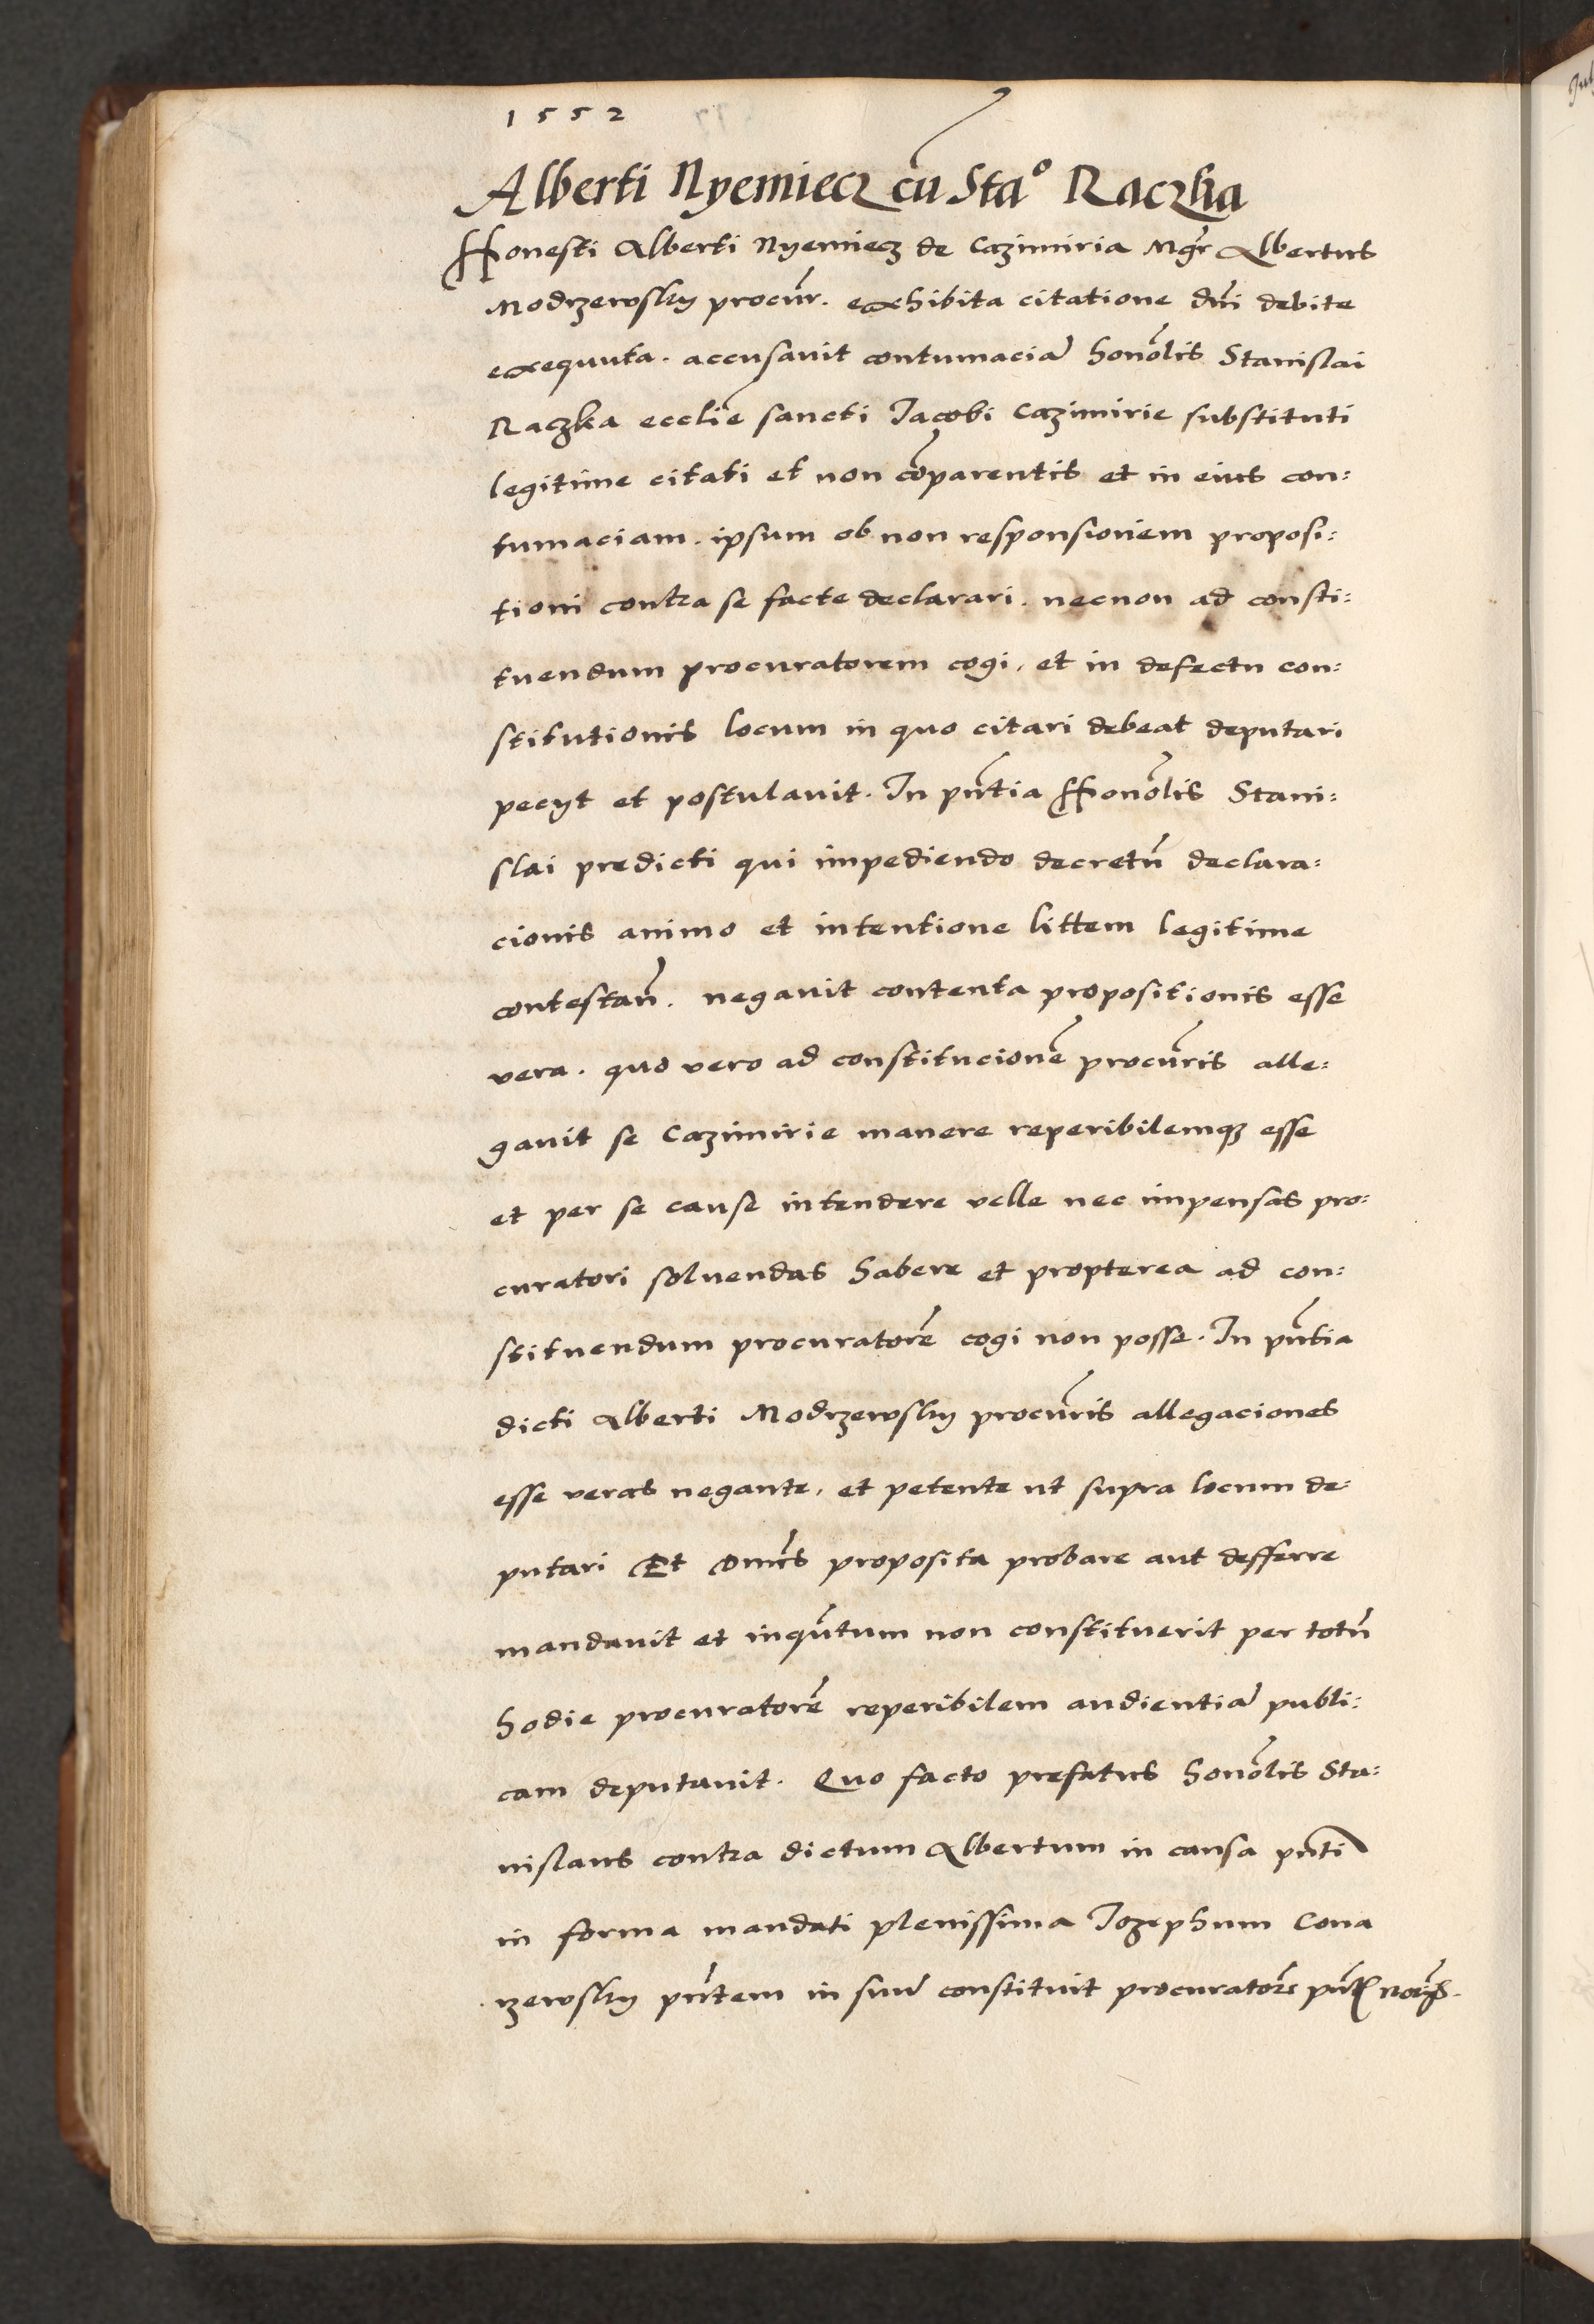 1552
Alberti Nyemiecz cū Sta° Raczka
Honesti Alberti Nyemiecz de Cazimiria Mgr̄ Albertus
Modrzewsky procūr. exhibita citatione dn̄i debite
exequuta. accusavit contumaciā honōlis Stanislai
Raczka ecclīe sancti Jacobi Cazimirie substituti
legitime citati et non cōparentis et in eius con:
tumaciam. ipsum ob non responsionem proposi:
tioni contra se facte declarari. necnon ad consti:
tuendum procuratorem cogi, et in defectu con:
stitutionis locum in quo citari debeat deputari
pecyt et postulavit. In pn̄tia Honōlis Stani:
slai predicti qui impediendo decretū declara:
cionis animo et intentione littem legitime
contestan̄. negavit contenta propositionis esse
vera. quo vero ad constitucionē procūris alle:
gavit se Cazimirie manere reperibilemqz esse
et per se cause intendere velle nec impensas pro:
curatori solvendas habere et propterea ad con:
stituendum procuratorē cogi non posse. In pn̄tia
dicti Alberti Modrzewsky procūris allegaciones
esse veras negante, et petente ut supra locum de:
putari Et Dn̄us proposita probare aut defferre
mandavit et inqūtum non constituerit per totū
hodie procuratorē reperibilem audientiā publi:
cam deputavit. Quo facto prefatus honōlis Sta:
nislaus contra dictum Albertum in causa pn̄ti
in forma mandati plenissima Jozephum Cona
rzewsky pn̄tem in suū constituit procuratorē